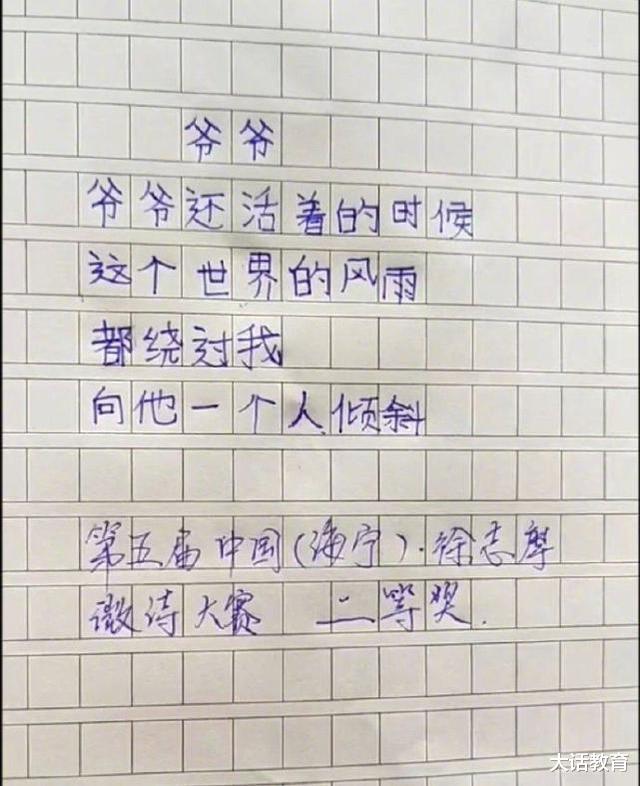 爷爷
爷爷还活着的时候
这个世界的风雨
都绕过我
向他一个人倾斜
第五届中国(海宁)·徐志摩
微诗大赛 二等奖.
大话教育